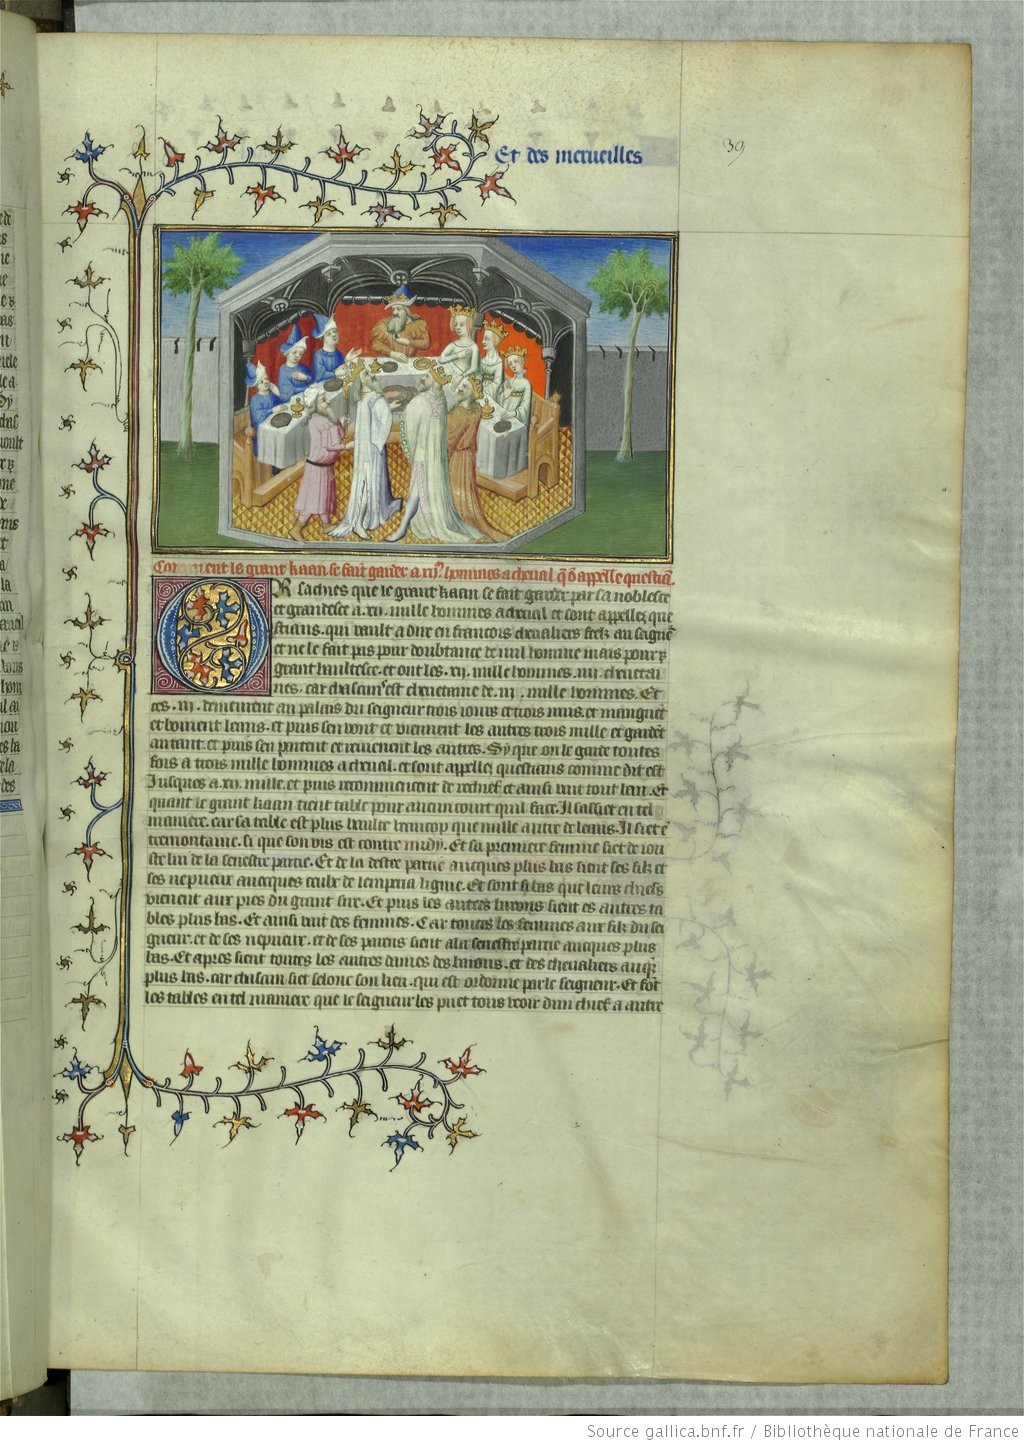 Et des merueilles
39
Comment le grant kaan se fait garder a xijm. hommes a cheual qͥ õ appelle questiã.
OR saches que le grant kaan se fait garder par sa noblesce
et grandesce a .xii. mille hommes a cheual et sont appellez que
stians. qui vault a dire en francois cheualiers feelz au seignẽ
et ne le fait pas pour doubtance de nul homme mais pour sa
grant haultesce. et ont les .xij. mille hommes .iiij. cheuetai
nes. car chascun est cheuetaine de .iij. mille hommes. Et
ces .iij. demeurent au palais du seigneur trois iours et trois nuis. et menguẽt
et boiuent leans. et puis sen vont et viennent les autres trois mille et gardẽt
autant. et puis sen partent et reuienent les autres. Sy que on le garde toutes
fois a trois mille hommes a cheual. et sont appellez questians comme dit est
Jusques a .xij. mille. et puis recommencent de rechief et ainsi vait tout lan. Et
quant le grant kaan tient table pour aucun court quil face. Il sassiet en tel
maniere. car sa table est plus haulte beaucop que nulle autre de leans. Il siet ẽ
tremontaine. si que son vis est contre midy. Et sa premiere femme siet de iou
ste lui de la senestre partie. Et de la destre partie aucques plus bas sient ses filz et
ses nepueux aucques ceulx de lemperial ligne. Et sont si bas que leurs chiefs
viennent aux piez du grant sire. Et puis les autres barons sient es autres ta
bles plus bas. Et ainsi vait des femmes. Car toutes les femmes aux filz du sei
gneur. et de ses nepueux. et de ses parens sient a la senestre partie aucques plus
bas. Et apres sient toutes les autres dames des barons. et des cheualiers aucq̃s
plus bas. car chascun siet selonc son lieu. qui est ordonne par le seigneur. Et sõt
les tables en tel maniere que le seigneur les puet tous veoir dun chief a autre
Source gallica.bnf.fr / Bibliothèque nationale de France